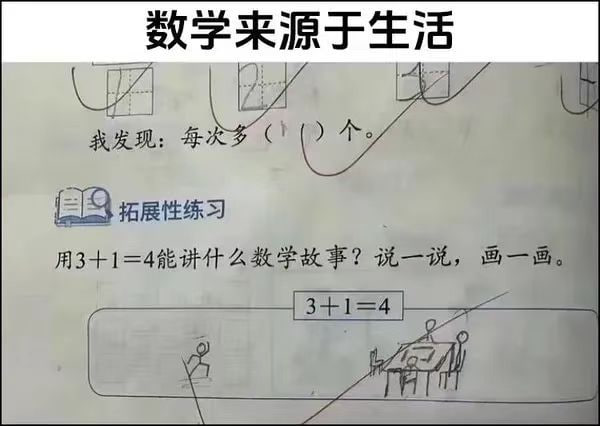 数学来源于生活
1 2 3
我发现：每次多（1）个。
拓展性练习
用3+1=4能讲什么数学故事？说一说，画一画。
3+1=4